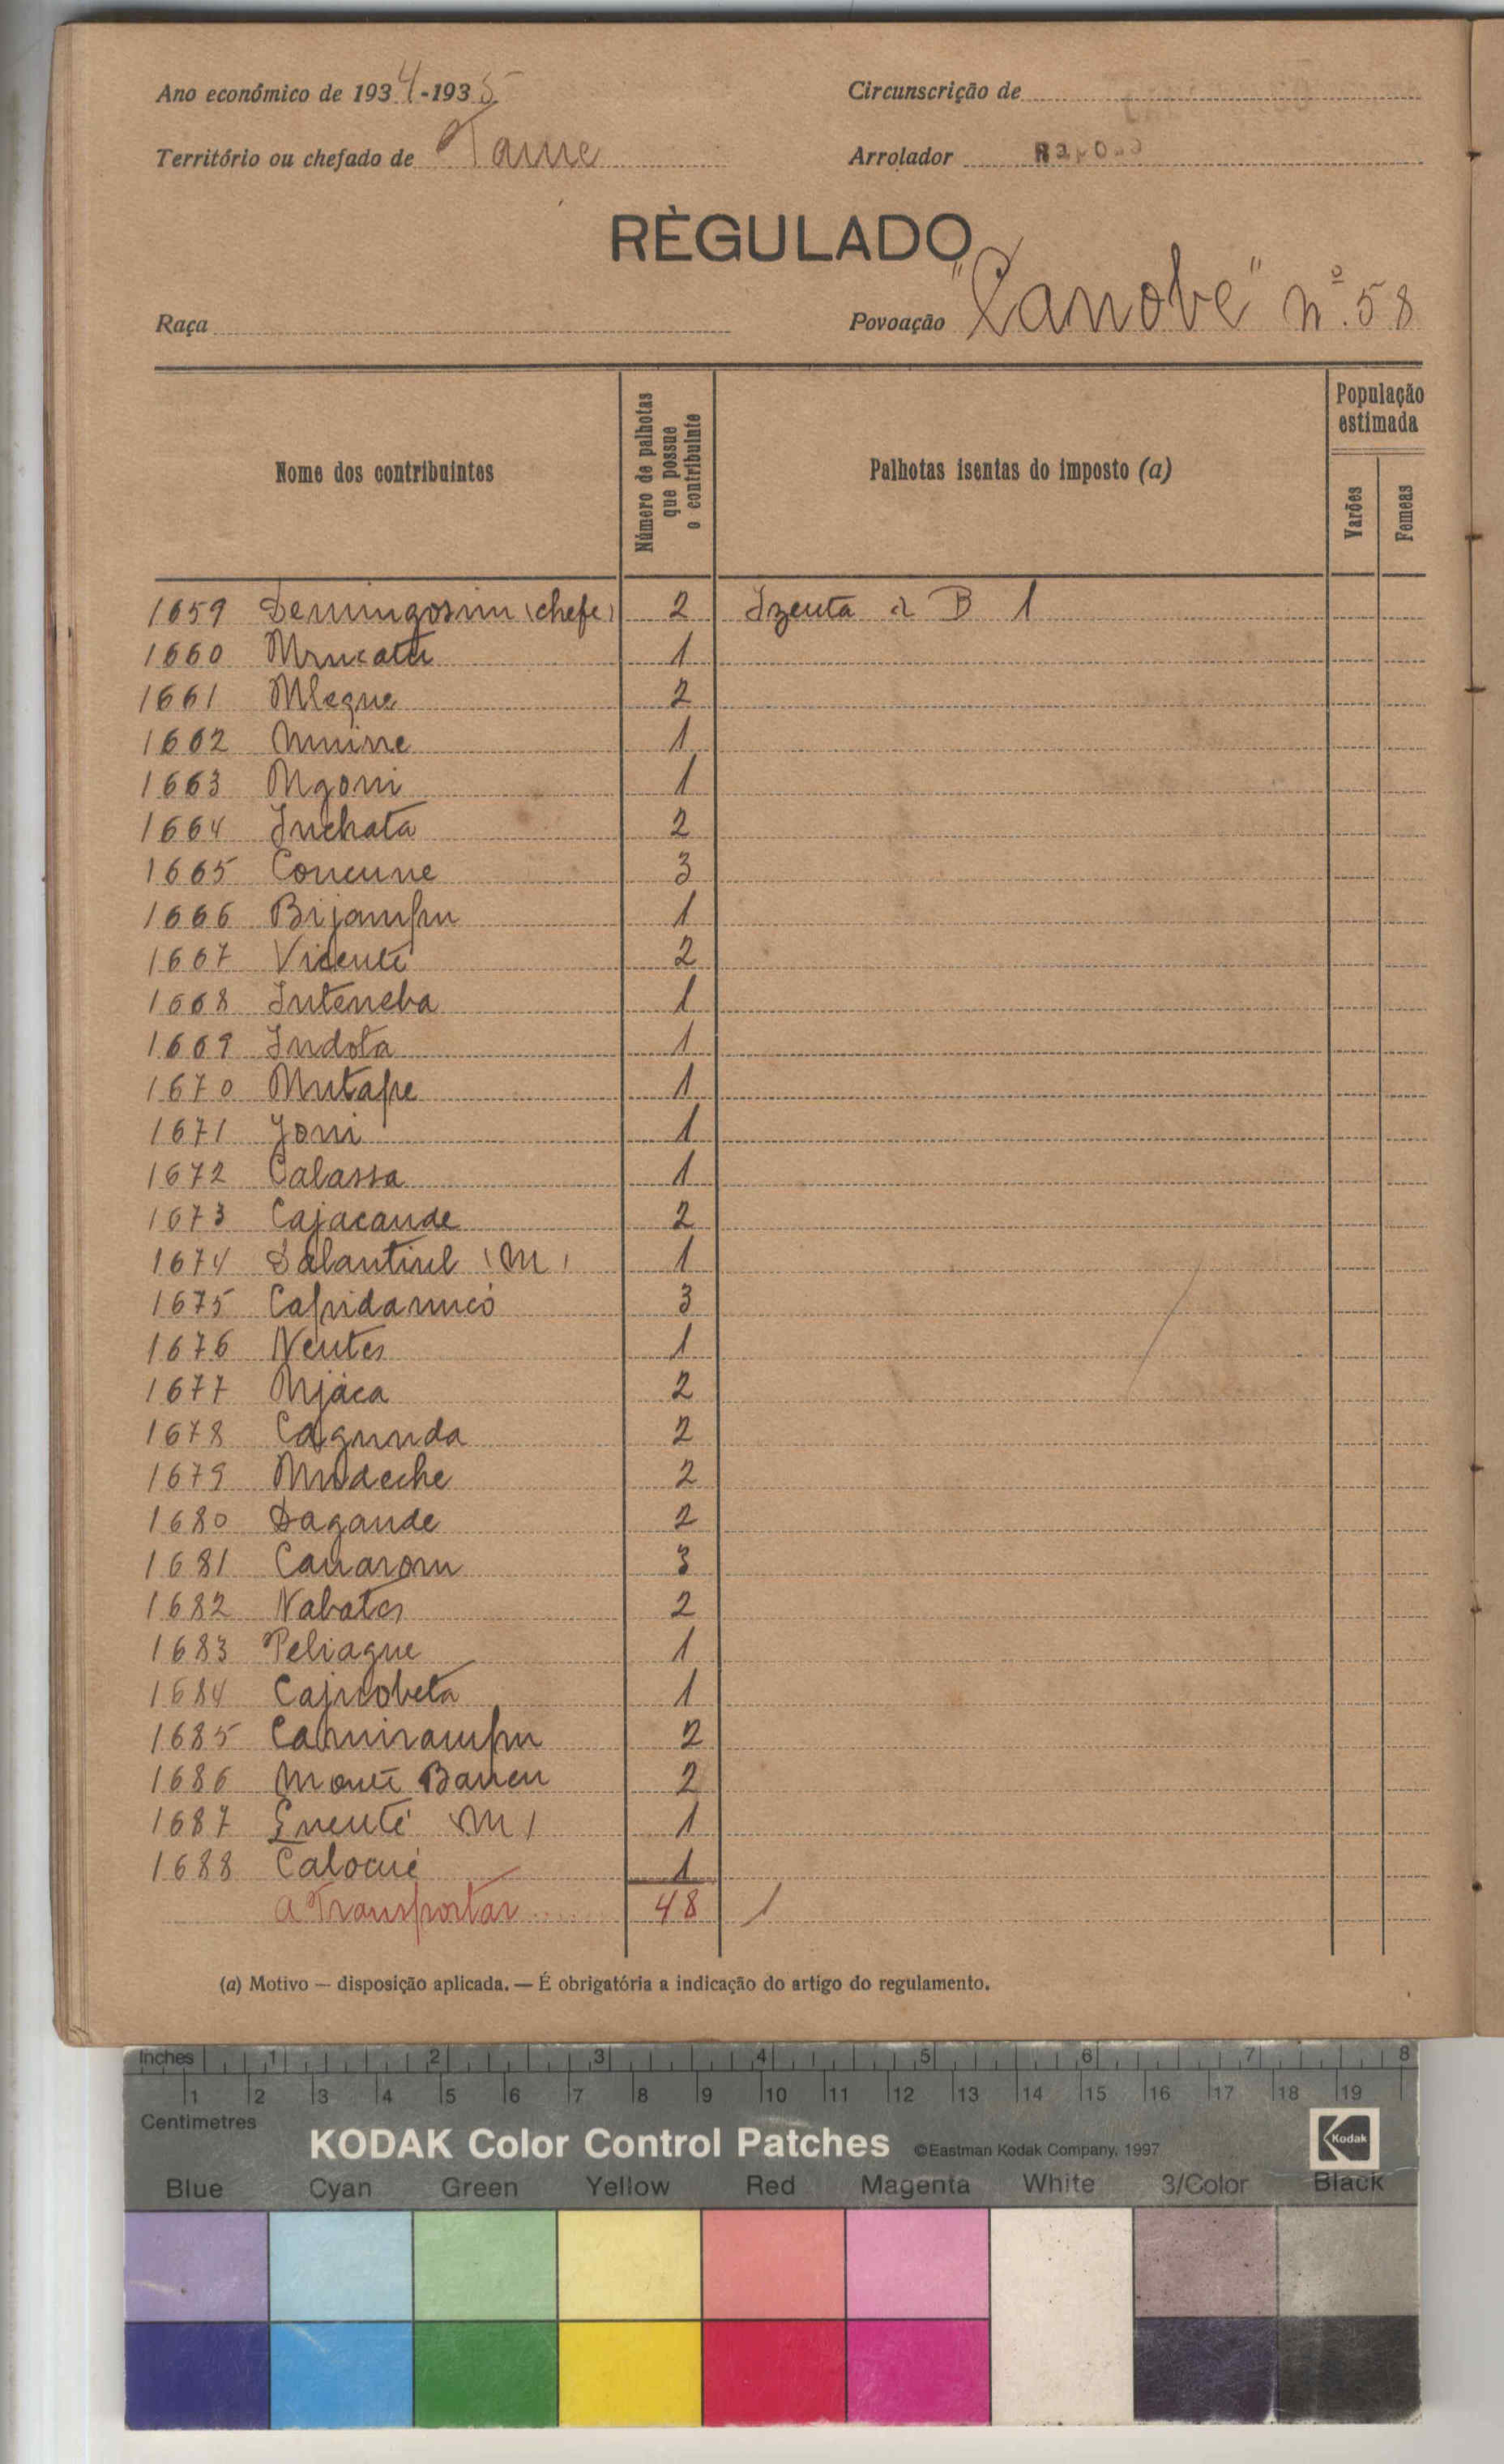 Ano económico de 1934-1935
Circunscrição de
Território ou chefado de Tame
Arrolador Raposo
RÈGULADO
Raça
Povoação "Canobe" nº. 58
Nome dos contribuintes
Número de palhotas que possue o contribuinte
Palhotas isentas do imposto (a)
População estimada
Varões
Femeas
1659 Demingosinu (chefe) 2 Izenta a B 1
1660 Mrucatu 1
1661 Mleque 2
1662 1
1663 Ngoni 1
1664 Inchata 2
1665 Concune 3
1666 Bijampu 1
1667 Vicente 2
1668 Inteneba 1
1669 Indota 1
1670 Mutape 1
1671 Joni 1
1672 Calassa 1
1673 Cajacande 2
1674 (M) 1
1675 3
1676 Nentes 1
1677 Njáca 2
1678 Cagunda 2
1679 Mudeche 2
1680 Dagande 2
1681 3
1682 Nabatos 2
1683 Peliaque 1
1684 Cajicobeta 1
1685 2
1686 Monte Baneu 2
1687 (M) 1
1688 Calocué 1
A Transportar.... 48 1
(a) Motivo — disposição aplicada. — É obrigatória a indicação do artigo do regulamento.
Inches 1 2 3 4 5 6 7 8
1 2 3 4 5 6 7 8 9 10 11 12 13 14 15 16 17 18 19
Centimetres
KODAK Color Control Patches ©Eastman Kodak Company, 1997 Kodak
Blue Cyan Green Yellow Red Magenta White 3/Color Black